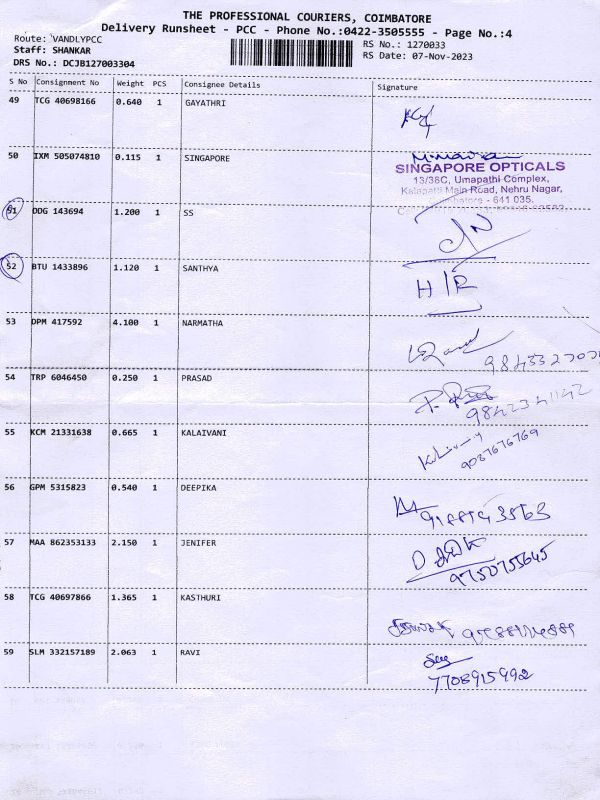 THE PROFESSIONAL COURIERS, COIMBATORE
Delivery Runsheet - PCC - Phone No.:0422-3505555 - Page No.:4
Route: VANDLYPCC
RS No.: 1270033
Staff: SHANKAR
RS Date: 07-Nov-2023
DRS No.: DCJB127003304
S No Consignment No Weight PCS Consignee Details Signature
49 TCG 40698166 0.640 1 GAYATHRI
50 IXM 505074810 0.115 1 SINGAPORE
SINGAPORE OPTICALS
13/38C, Umapathi Complex,
Kalapatti Main Road, Nehru Nagar,
Coimbatore - 641 035.
51 DDG 143694 1.200 1 SS
52 BTU 1433896 1.120 1 SANTHYA
H/R
53 DPM 417592 4.100 1 NARMATHA
54 TRP 6046450 0.250 1 PRASAD
9842341142
55 KCM 21331638 0.665 1 KALAIVANI
9087676769
56 GPM 5315823 0.540 1 DEEPIKA
57 MAA 862353133 2.150 1 JENIFER
9750755645
58 TCG 40697866 1.365 1 KASTHURI
59 SLM 332157189 2.063 1 RAVI
7708915992